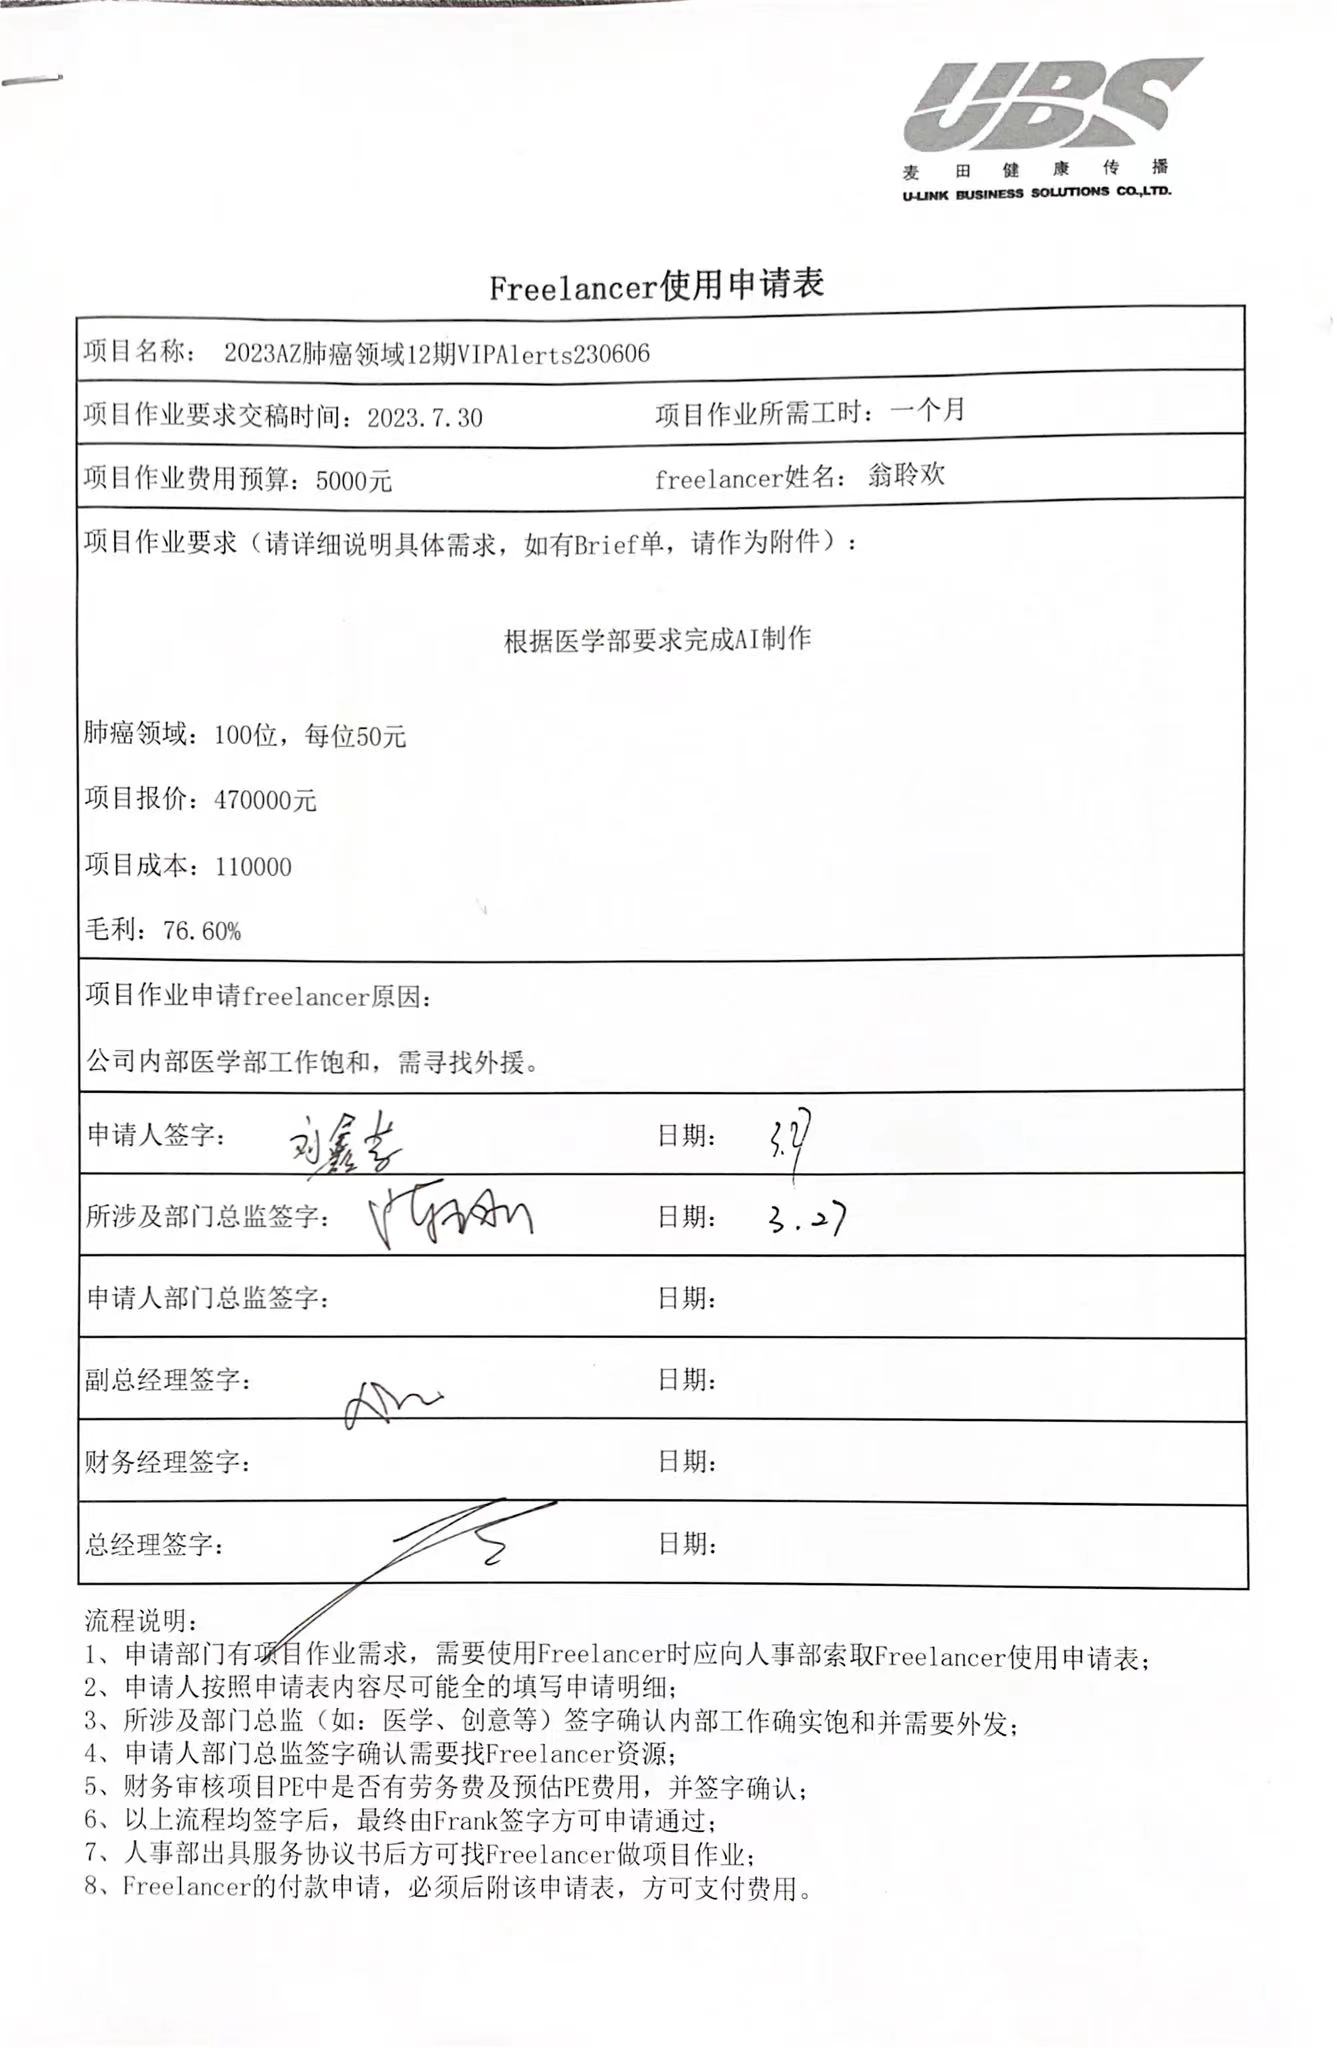 UBS
麦田健康传播
U-LINK BUSINESS SOLUTIONS CO.,LTD.
Freelancer使用申请表
项目名称： 2023AZ肺癌领域12期VIPAlerts230606
项目作业要求交稿时间：2023.7.30 项目作业所需工时：一个月
项目作业费用预算：5000元 freelancer姓名： 翁聆欢
项目作业要求（请详细说明具体需求，如有Brief单，请作为附件）：
根据医学部要求完成AI制作
肺癌领域：100位，每位50元
项目报价：470000元
项目成本：110000
毛利：76.60%
项目作业申请freelancer原因：
公司内部医学部工作饱和，需寻找外援。
申请人签字： 日期： 3.27
所涉及部门总监签字： 日期： 3.27
申请人部门总监签字： 日期：
副总经理签字： 日期：
财务经理签字： 日期：
总经理签字： 日期：
流程说明：
1、申请部门有项目作业需求，需要使用Freelancer时应向人事部索取Freelancer使用申请表；
2、申请人按照申请表内容尽可能全的填写申请明细；
3、所涉及部门总监（如：医学、创意等）签字确认内部工作确实饱和并需要外发；
4、申请人部门总监签字确认需要找Freelancer资源；
5、财务审核项目PE中是否有劳务费及预估PE费用，并签字确认；
6、以上流程均签字后，最终由Frank签字方可申请通过；
7、人事部出具服务协议书后方可找Freelancer做项目作业；
8、Freelancer的付款申请，必须后附该申请表，方可支付费用。